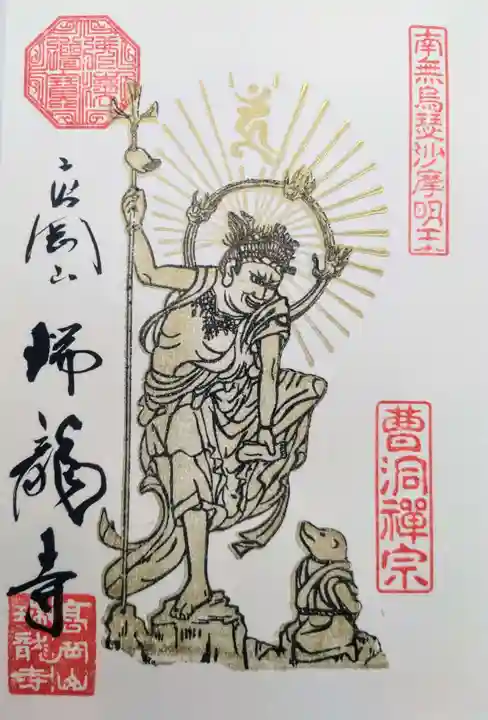 南無烏瑟沙摩明王
曹洞禪宗
高岡山
瑞龍寺
高岡山
瑞龍寺